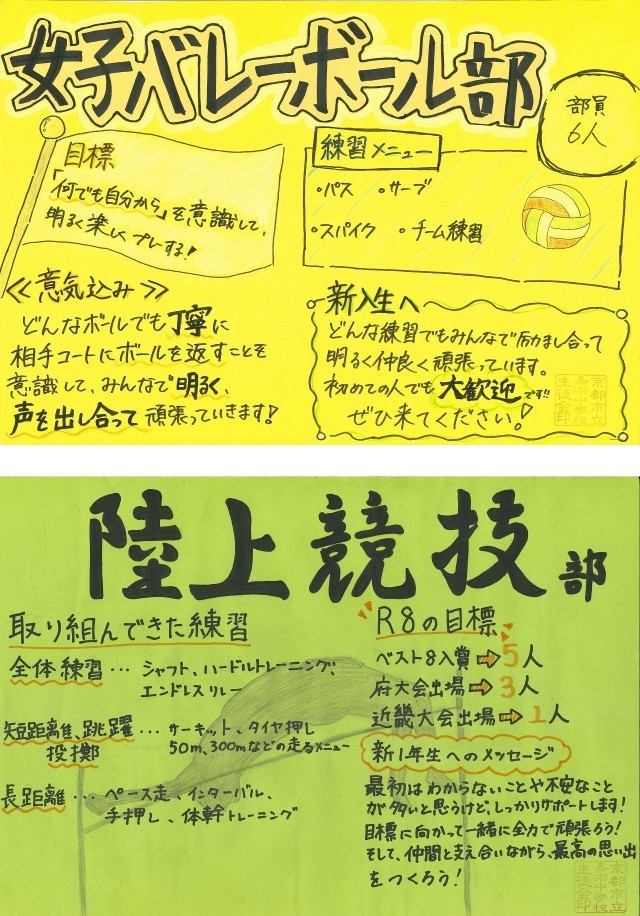 女子バレーボール部
部員
6人
目標
「何でも自分から」を意識して、
明るく楽しくプレーする!
練習メニュー
・パス ・サーブ
・スパイク ・チーム練習
≪意気込み≫
どんなボールでも丁寧に
相手コートにボールを返すことを
意識して、みんなで明るく、
声を出し合って頑張っていきます!
新入生へ
どんな練習でもみんなで励まし合って
明るく仲良く頑張っています。
初めての人でも大歓迎です!!
ぜひ来てください!
京都市立
生徒会印
陸上競技部
取り組んできた練習
全体練習… シャフト、ハードルトレーニング、
エンドレスリレー
短距離、跳躍… サーキット、タイヤ押し
投擲 50m、300mなどの走るメニュー
長距離… ペース走、インターバル、
手押し、体幹トレーニング
R8の目標
ベスト8入賞⇒5人
府大会出場⇒3人
近畿大会出場⇒1人
新1年生へのメッセージ
最初はわからないことや不安なこと
が多いと思うけど、しっかりサポートします!
目標に向かって一緒に全力で頑張ろう!
そして、仲間と支え合いながら、最高の思い出
をつくろう!
京都市立
生徒会印